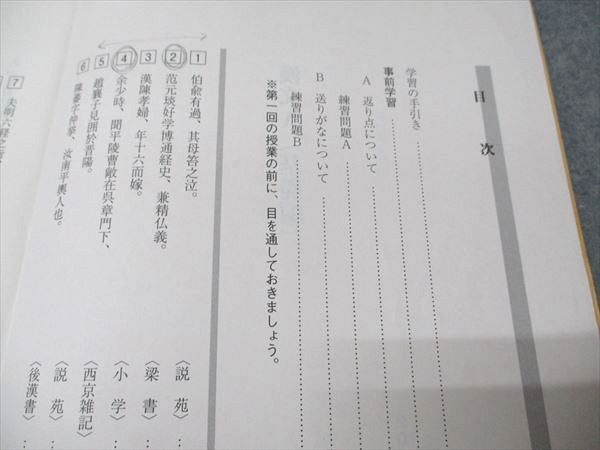 目次
学習の手引き
事前学習
A 返り点について
練習問題A
B 送りがなについて
練習問題B
※第一回の授業の前に、目を通しておきましょう。
1 伯兪有過、其母笞之泣。〈説苑〉
2 范元琰好学博通経史、兼精仏義。〈梁書〉
3 漢陳孝婦、年十六而嫁。〈小学〉
4 余少時、聞平陵曹敞在呉章門下、〈西京雑記〉
5 趙襄子見囲於晋陽。〈説苑〉
6 陳蕃字仲挙、汝南平輿人也。〈後漢書〉